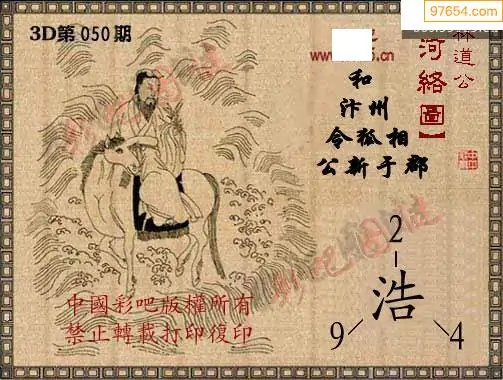 97654.com
3D第050期
林道公
河絡圖】
和
汴州
令狐相
公新于郡
2
浩
9
4
彩吧图谜
彩吧图谜
中國彩吧版權所有
禁止轉載打印復印